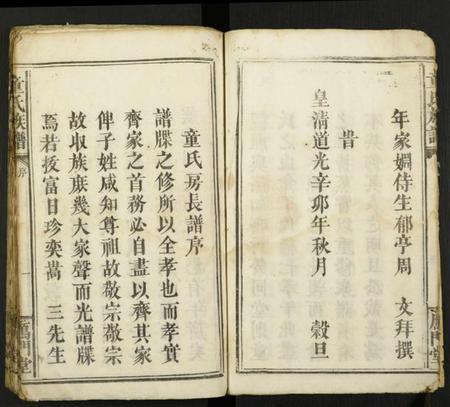 年家姻侍生郁亭周　文拜撰
旹
皇清道光辛卯年秋月　穀旦
童氏族譜
鴈門堂
童氏房長譜序
譜牒之修所以全孝也而孝實
齊家之首務必自盡以齊其家
俾子姓咸知尊祖故敬宗敬宗
故収族庶幾大家聲而光譜牒
焉若扳富日珍奕嵩　三先生
童氏族譜
序
一
鴈門堂